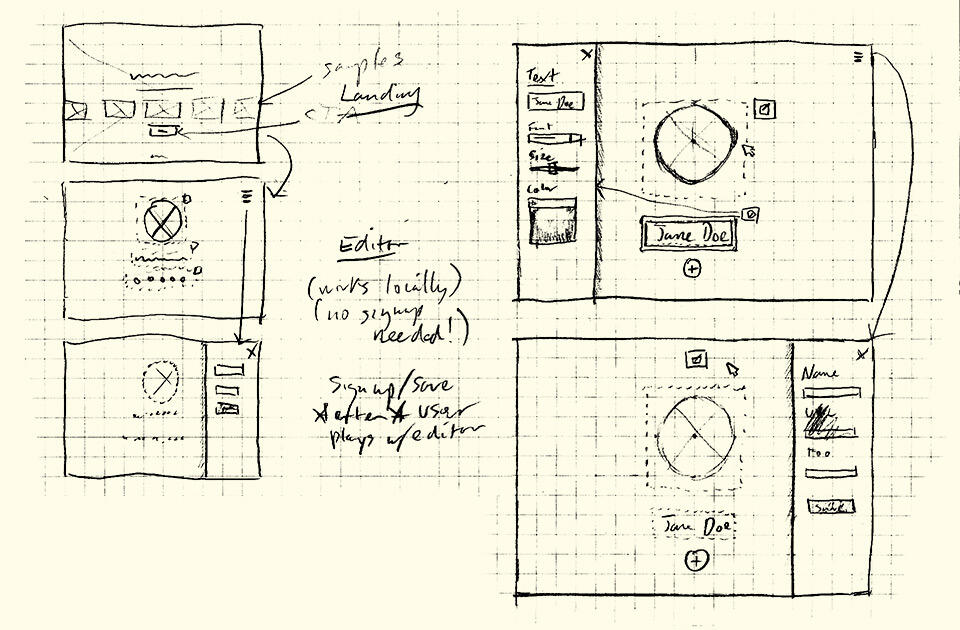 samples
Landing
CTA
Editor
(works locally)
(no signup
needed!)
Signup/Save
after user
plays w/editor
X
Text
Jane Doe
Font
Size
Color
Jane Doe
X
Name
Save
Jane Doe
X